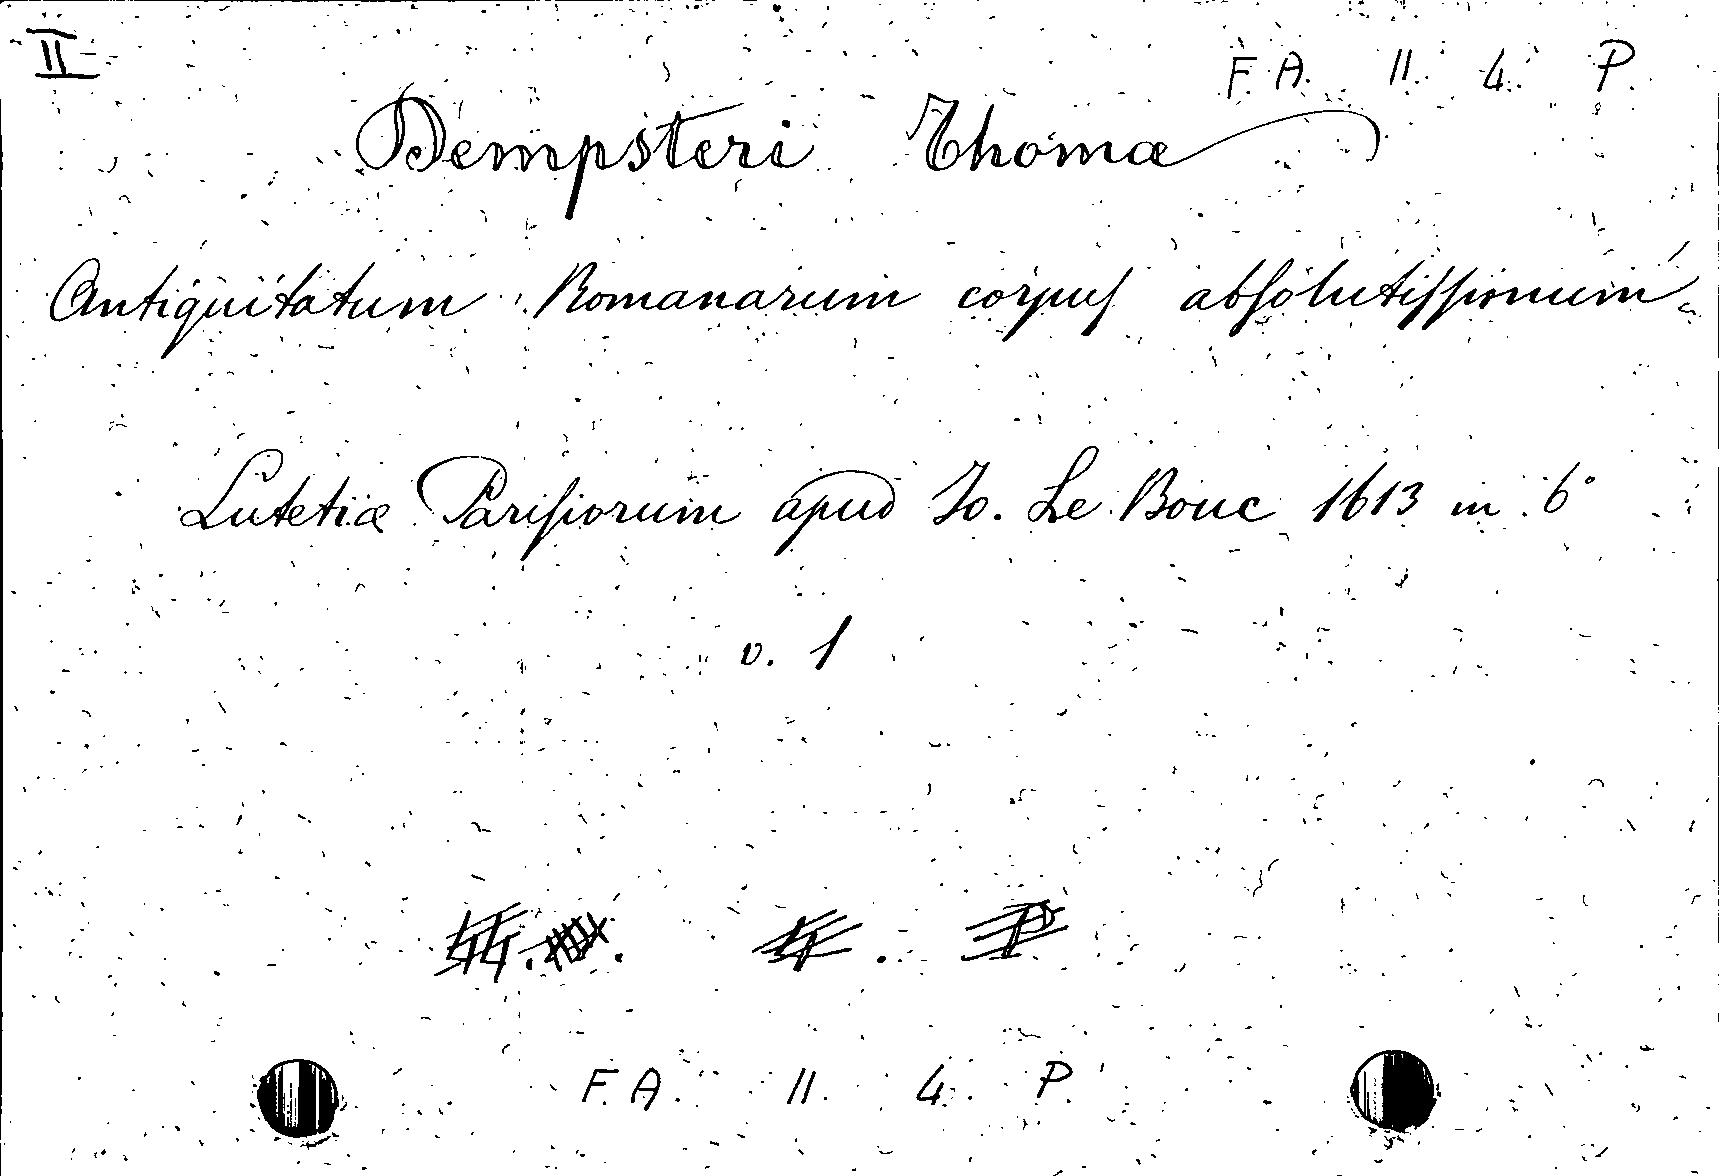 II
F. A. II. 4. P.
Dempsteri Thomæ
Antiquitatum Romanarum corpus absolutissimum.
Lutetiæ Parisiorum apud Jo. Le Bouc 1613 in 6°
v. 1
F. A. II. 4. P.